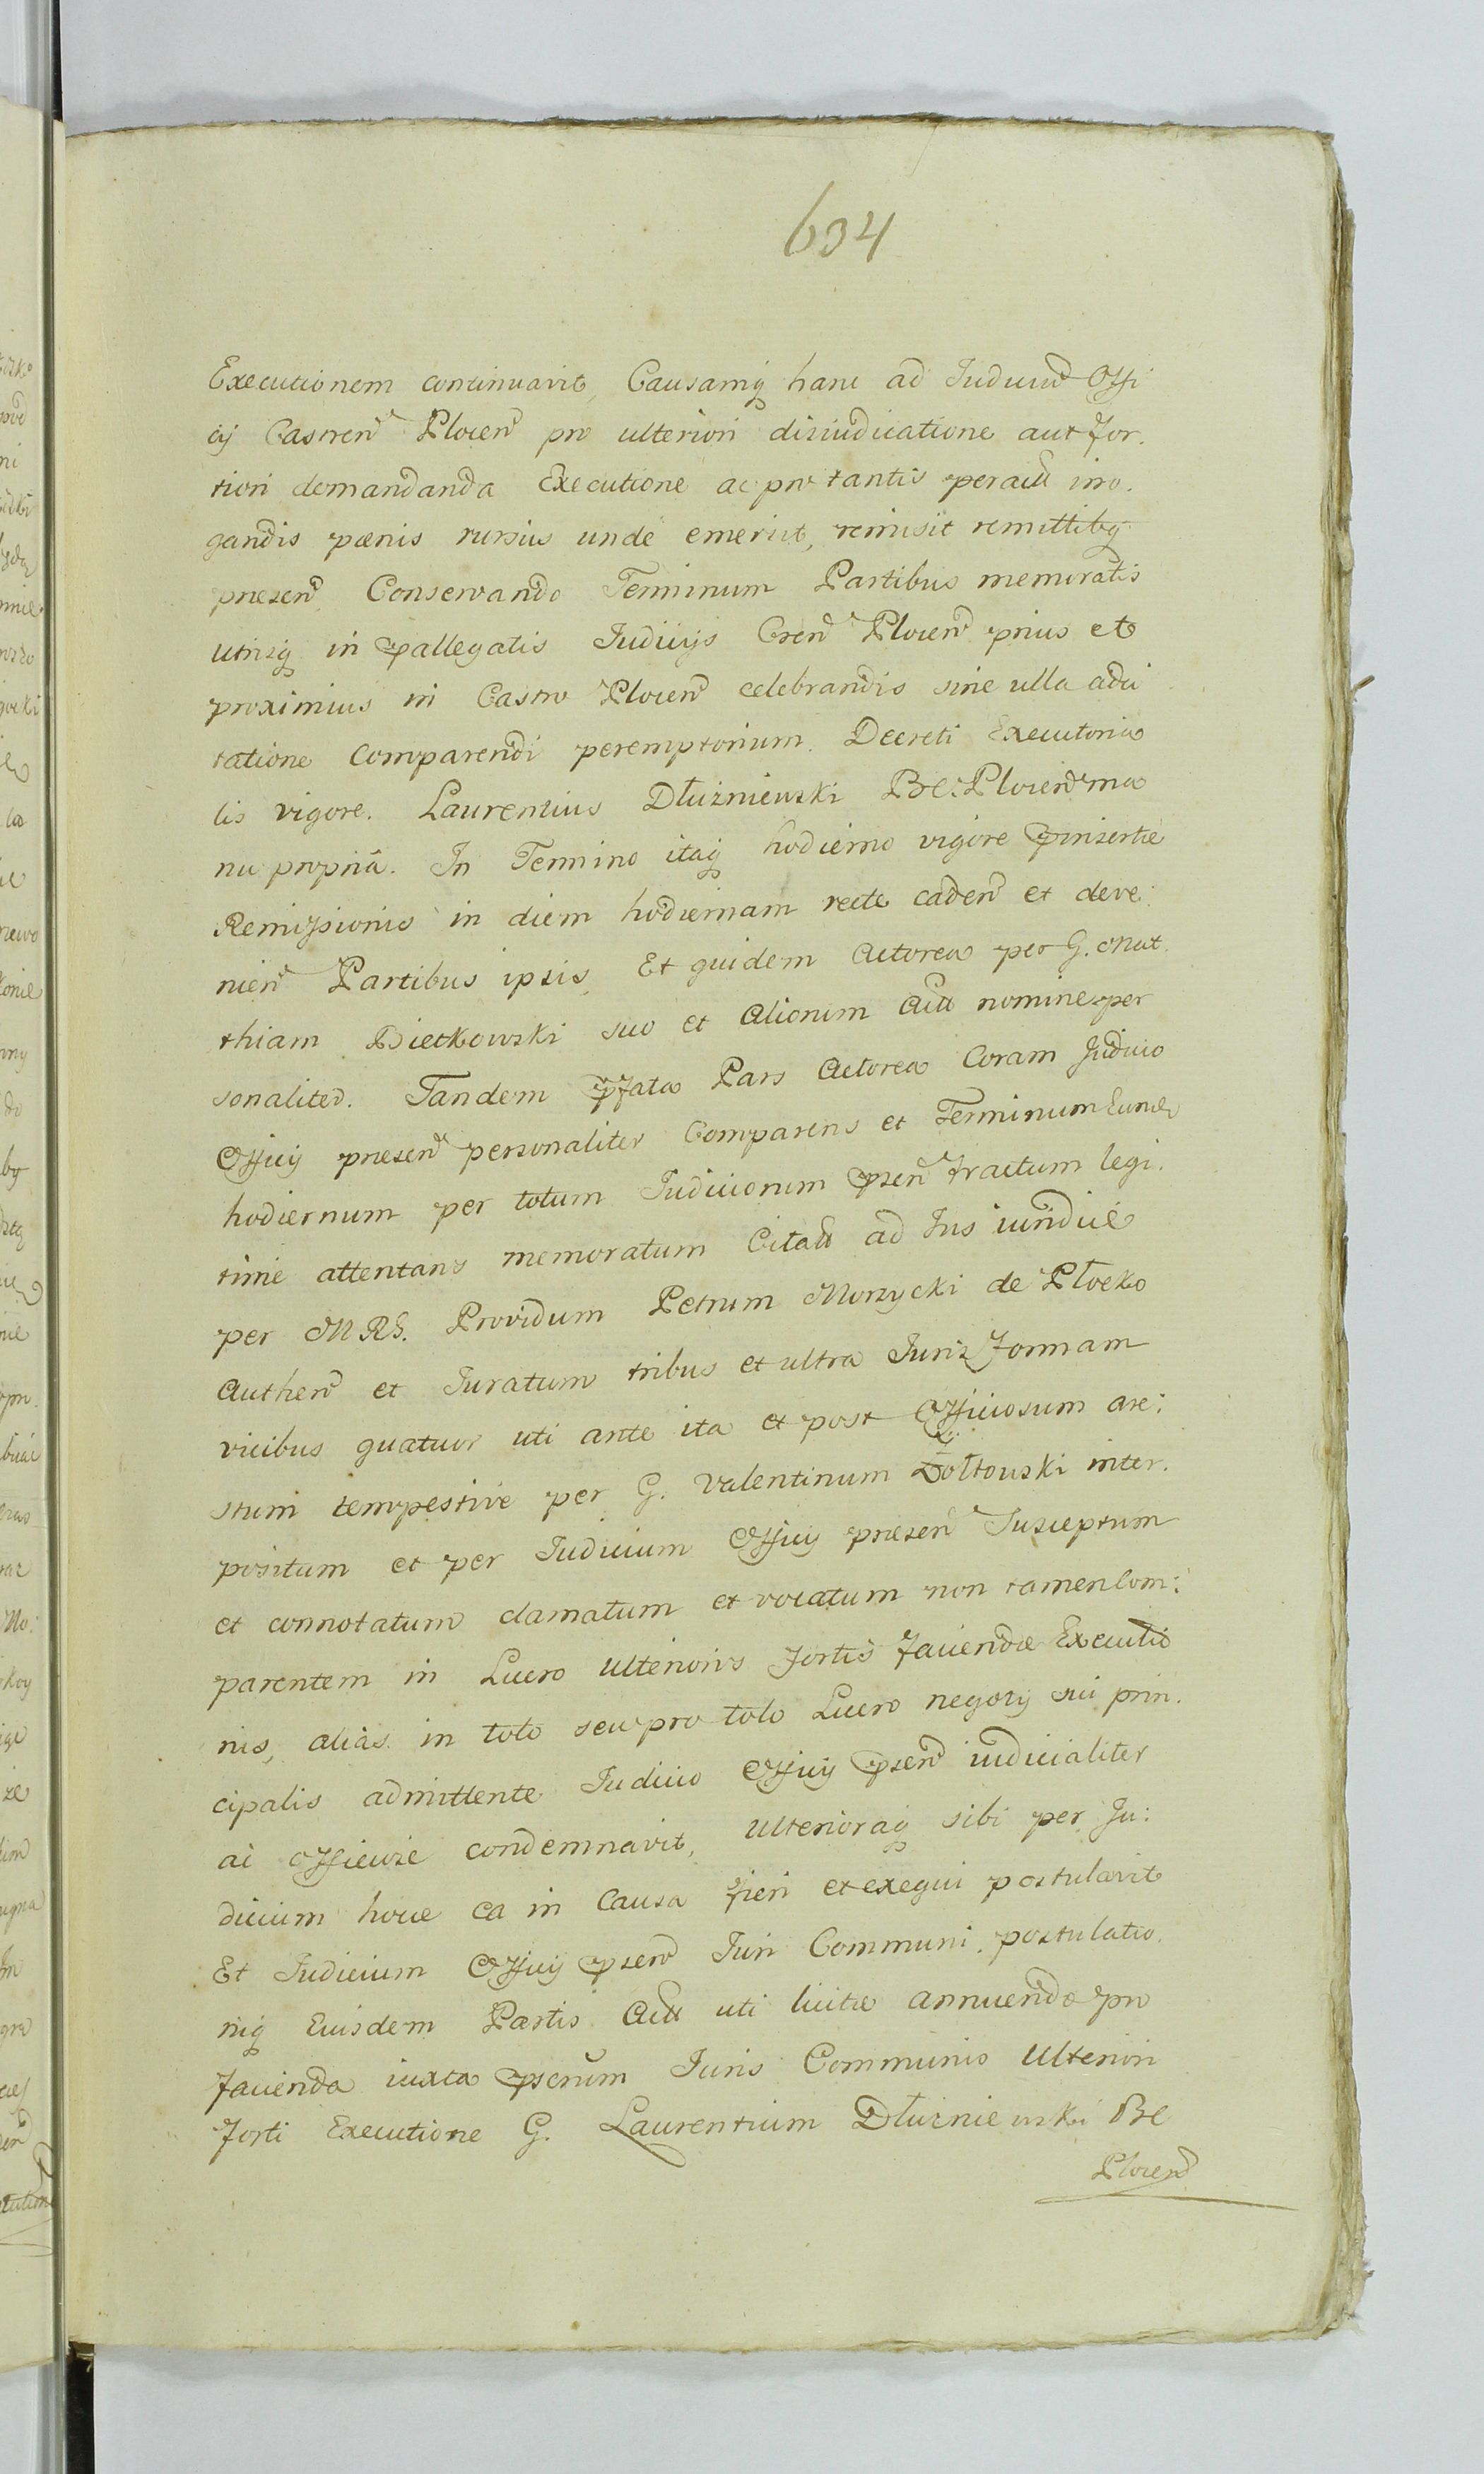 634
Executionem continuavit, Causamq hanc ad Judiciu Offi
cij Castren Plocen pro ulteriori disiudicatione aut for.
tiori demandanda Executione ac pro tantis peractt irro.
gandis pœnis rursus unde emersit, remisit remittitq
presen Conservando Terminum Partibus memoratis
utrisq in pallegatis Judicijs Cren Plocen prius et
proximius in Castro Plocen celebrandis sine ulla adci
tatione Comparendi peremptorium. Decreti Executoria
lis vigore. Laurentius Dłużniewski BC: Plocen ma
nu propriâ. In Termino itaq hodierno vigore pinsertæ
Remissionis in diem hodiernam recte caden et deve:
nien Partibus ipsis, Et quidem Actorea per G. Mat
thiam Bietkowski suo et Aliorum Actt nomine per
sonaliter. Tandem pfata Pars Actorea Coram Judicio
Officij presen personaliter Comparens et Terminum Eund
hodiernum per totum Judiciorum psen tractum legi.
time attentans memoratum Citatt ad Jus iuridicè
per MRG. Providum Petrum Morzycki de Płocko
Authen et Juratum tribus et ultra Juris formam
vicibus quatuor uti ante ita et post Officiosum are:
stum tempestive per G. Valentinum Żołtowski inter.
positum et per Judicium Officij presen Susceptum
et connotatum clamatum et vocatum non tamen Com:
parentem in Lucro Ulterioris fortis faciendæ Executio
nis, alias in toto seu pro toto Lucro negotij sui prin.
cipalis admittente Judicio Officij psen iudicialiter
ac officiose condemnavit, Ulterioraq sibi per Ju:
dicium hocce ea in Causa fieri et exequi postulavit
Et Judicium Officij psen Juri Communi, postulatio.
niq Eiusdem Partis Actt uti licitæ annuendo pro
facienda iuxta pscrum Juris Communis Ulteriori
forti Executione G. Laurentium Dłużniewski BC
Plocen